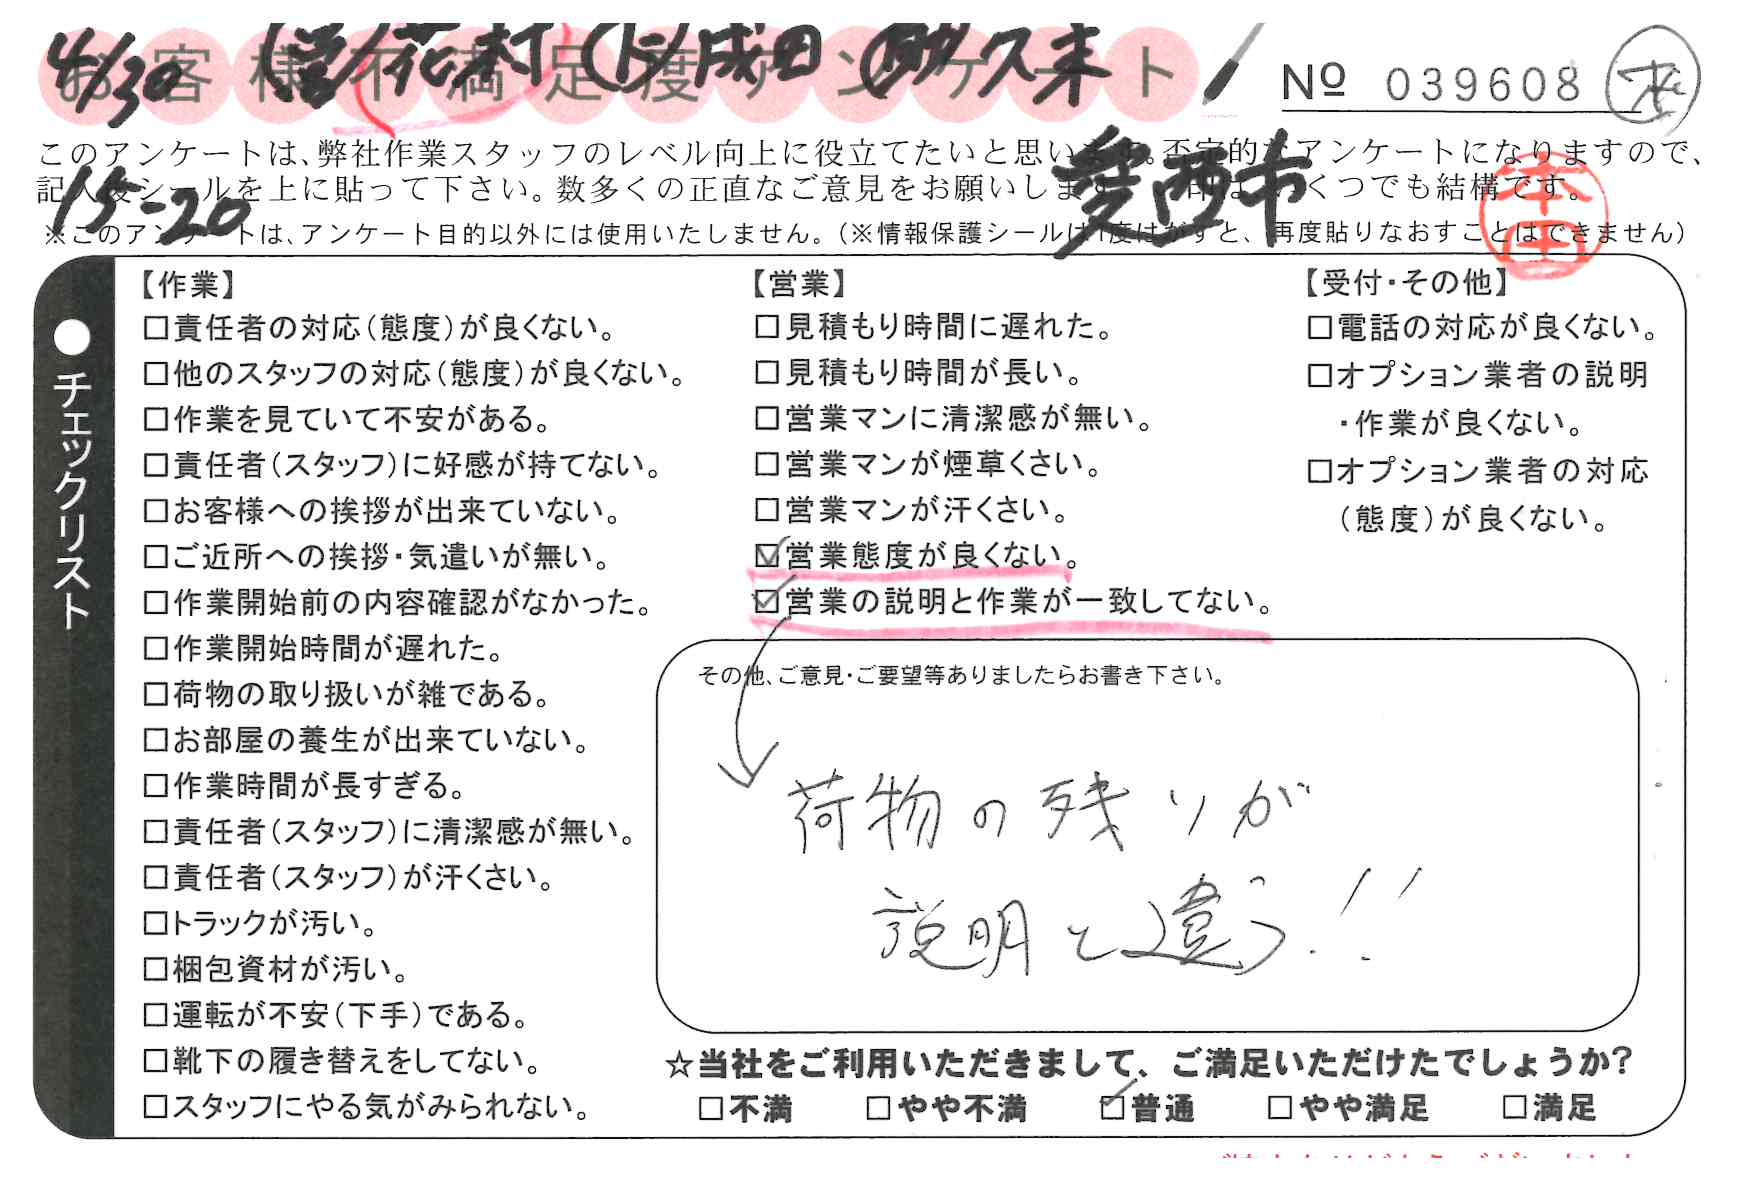 お客様不満足度アンケート
4/30 花村 成田 久末
Nº 039608
このアンケートは、弊社作業スタッフのレベル向上に役立てたいと思います。否定的なアンケートになりますので、
記入後シールを上に貼って下さい。数多くの正直なご意見をお願いします いくつでも結構です。
15-20
※このアンケートは、アンケート目的以外には使用いたしません。(※情報保護シールは1度はがすと、再度貼りなおすことはできません)
本田
●チェックリスト
【作業】
□責任者の対応(態度)が良くない。
□他のスタッフの対応(態度)が良くない。
□作業を見ていて不安がある。
□責任者(スタッフ)に好感が持てない。
□お客様への挨拶が出来ていない。
□ご近所への挨拶・気遣いが無い。
□作業開始前の内容確認がなかった。
□作業開始時間が遅れた。
□荷物の取り扱いが雑である。
□お部屋の養生が出来ていない。
□作業時間が長すぎる。
□責任者(スタッフ)に清潔感が無い。
□責任者(スタッフ)が汗くさい。
□トラックが汚い。
□梱包資材が汚い。
□運転が不安(下手)である。
□靴下の履き替えをしてない。
□スタッフにやる気がみられない。
【営業】
□見積もり時間に遅れた。
□見積もり時間が長い。
□営業マンに清潔感が無い。
□営業マンが煙草くさい。
□営業マンが汗くさい。
☑営業態度が良くない。
☑営業の説明と作業が一致してない。
【受付・その他】
□電話の対応が良くない。
□オプション業者の説明
・作業が良くない。
□オプション業者の対応
(態度)が良くない。
その他、ご意見・ご要望等ありましたらお書き下さい。
荷物の残りが
説明と違う!!
☆当社をご利用いただきまして、ご満足いただけたでしょうか?
□不満 □やや不満 ☑普通 □やや満足 □満足